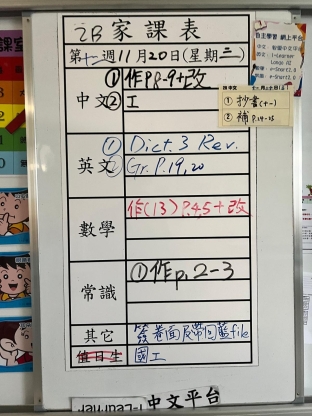 2B 家課表
第十一週11月20日(星期三)
中文
① 作P.8-9+改
② 工
英文
① Dict. 3 Rev.
② Gr. P.19,20
數學
作(13) P.4,5 + 改
常識
① 作p.2-3
其它
簽卷面及帶回藍file
值日生
國工
自主學習 網上平台
① 抄書(十一)
② 補 P.24-25
中文平台
i-Learner